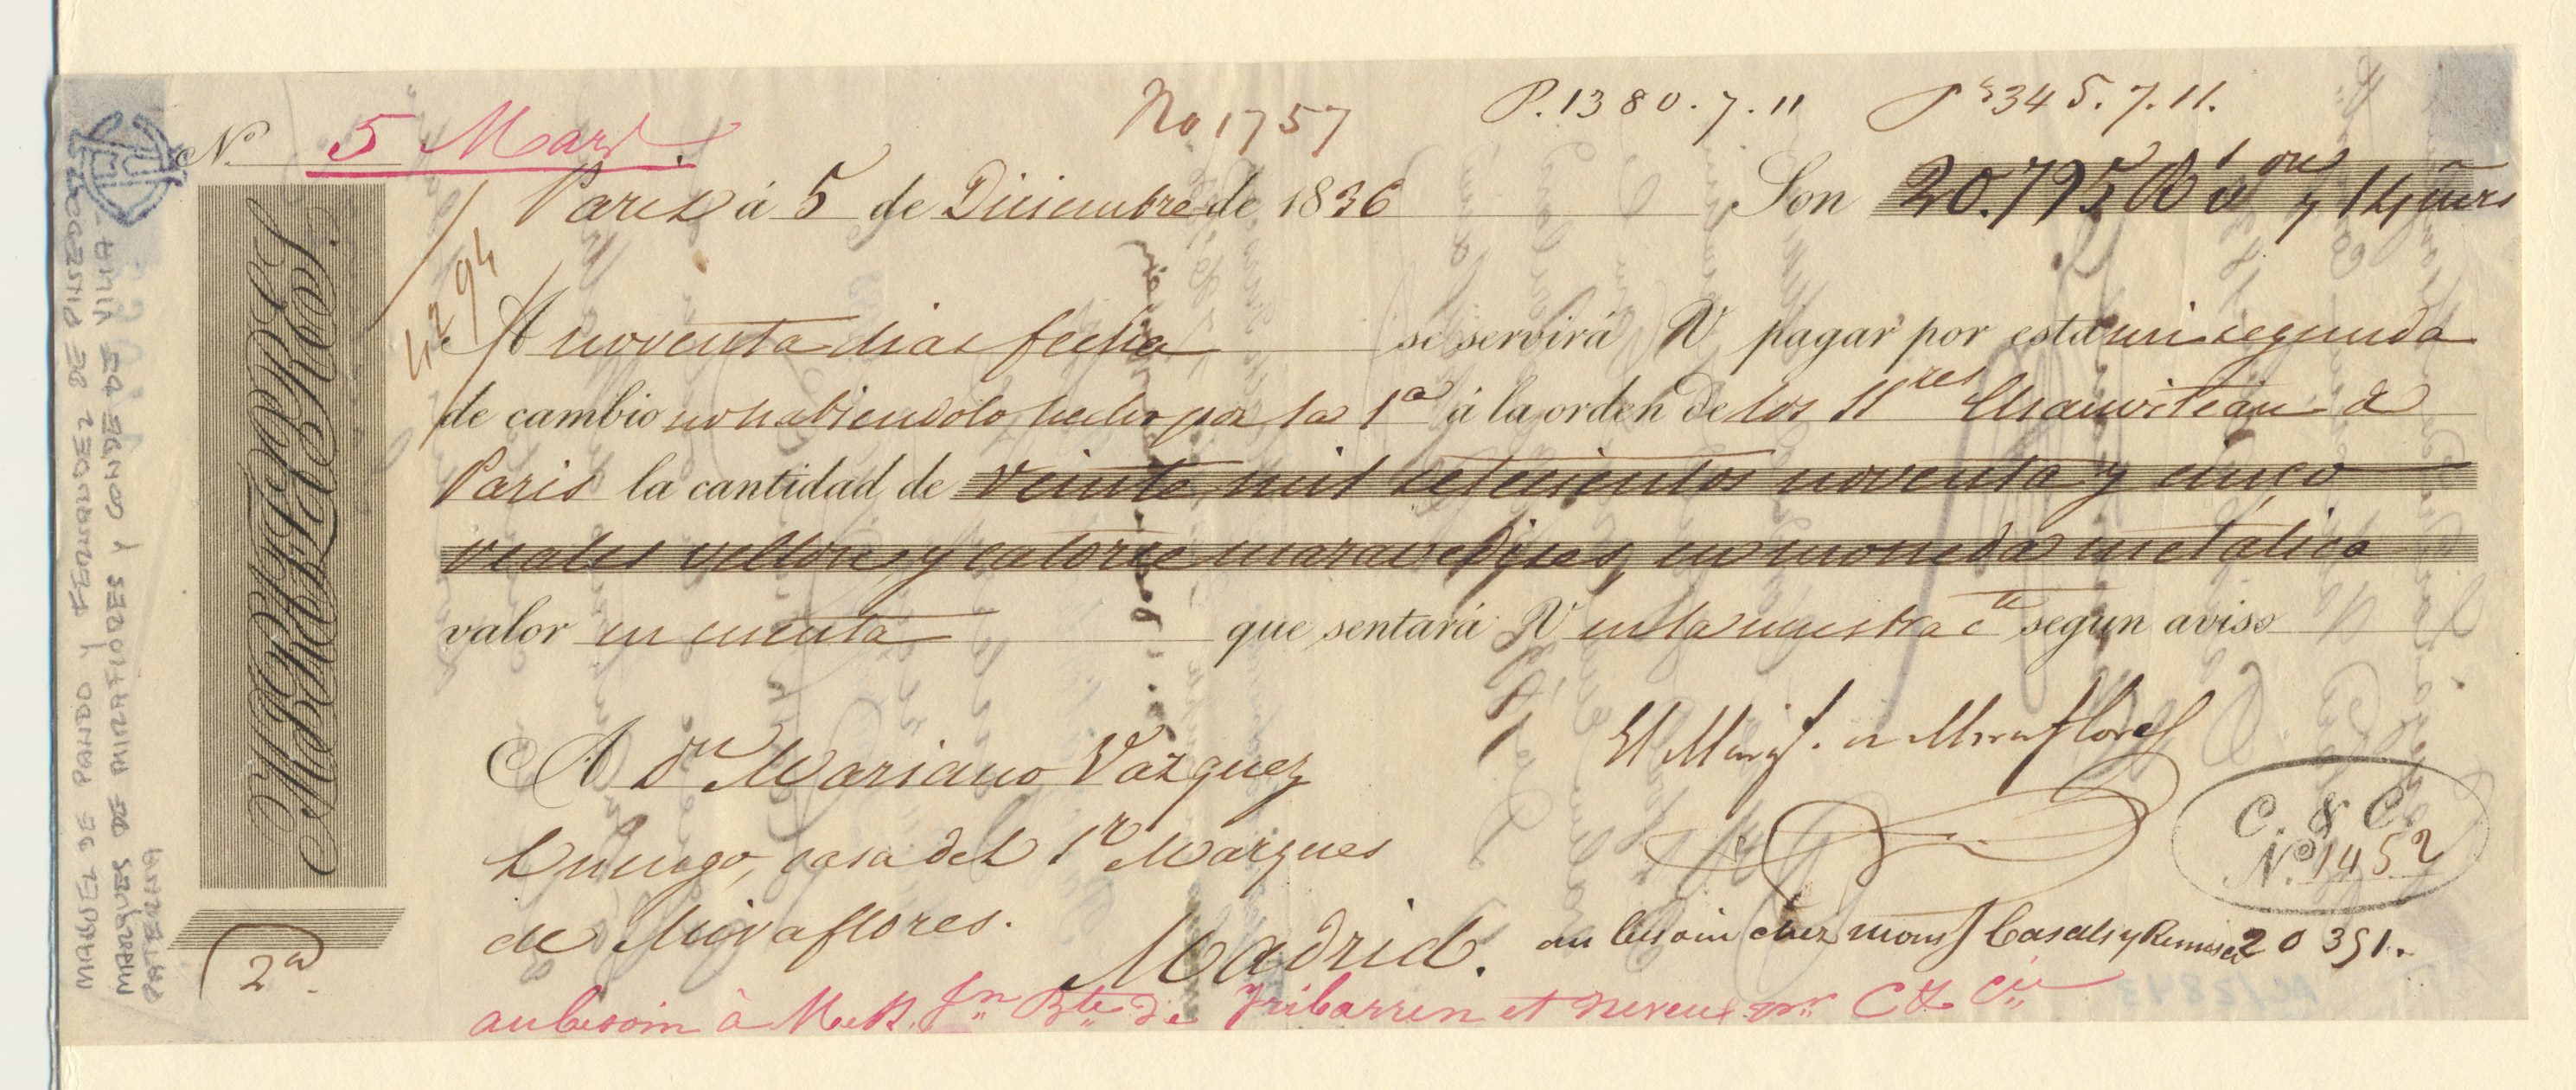 Nº 5 Mars.
No 1757
P. 1380. 7. 11
Pˢ 345. 7. 11.
Paris á 5 de Diciembre de 1836
Son 20.795 Rˢ vⁿ y 14 mrs
4294
A noventa dias fecha se servirá V pagar por esta mi segunda
de cambio no habiendolo hecho por la 1ª á la orden de los Sʳᵉˢ Chauviteau de
Paris la cantidad de veinte mil setecientos noventa y cinco
reales vellon, y catorce maravedises, en moneda metalica
valor en cuenta que sentará V en la nuestra cᵗᵃ segun aviso
El Marqˢ. de Miraflores
A Dⁿ Mariano Vazquez
Luengo, casa del Sʳ Marques
de Miraflores.
Madrid.
C. & C.
Nº 1452
au besoin chez monsʳ Casals y Remisa
20351.
au besoin à Mess. Jⁿ Bᵗᵉ de Iribarren et neveux pʳ C & Cⁱᵉ
2ª.
MIRAFLORES.
MANUEL DE PANDO Y FERNANDEZ DE PINEDO
MARQUES DE MIRAFLORES Y CONDE DE VILLA-
PATERNA